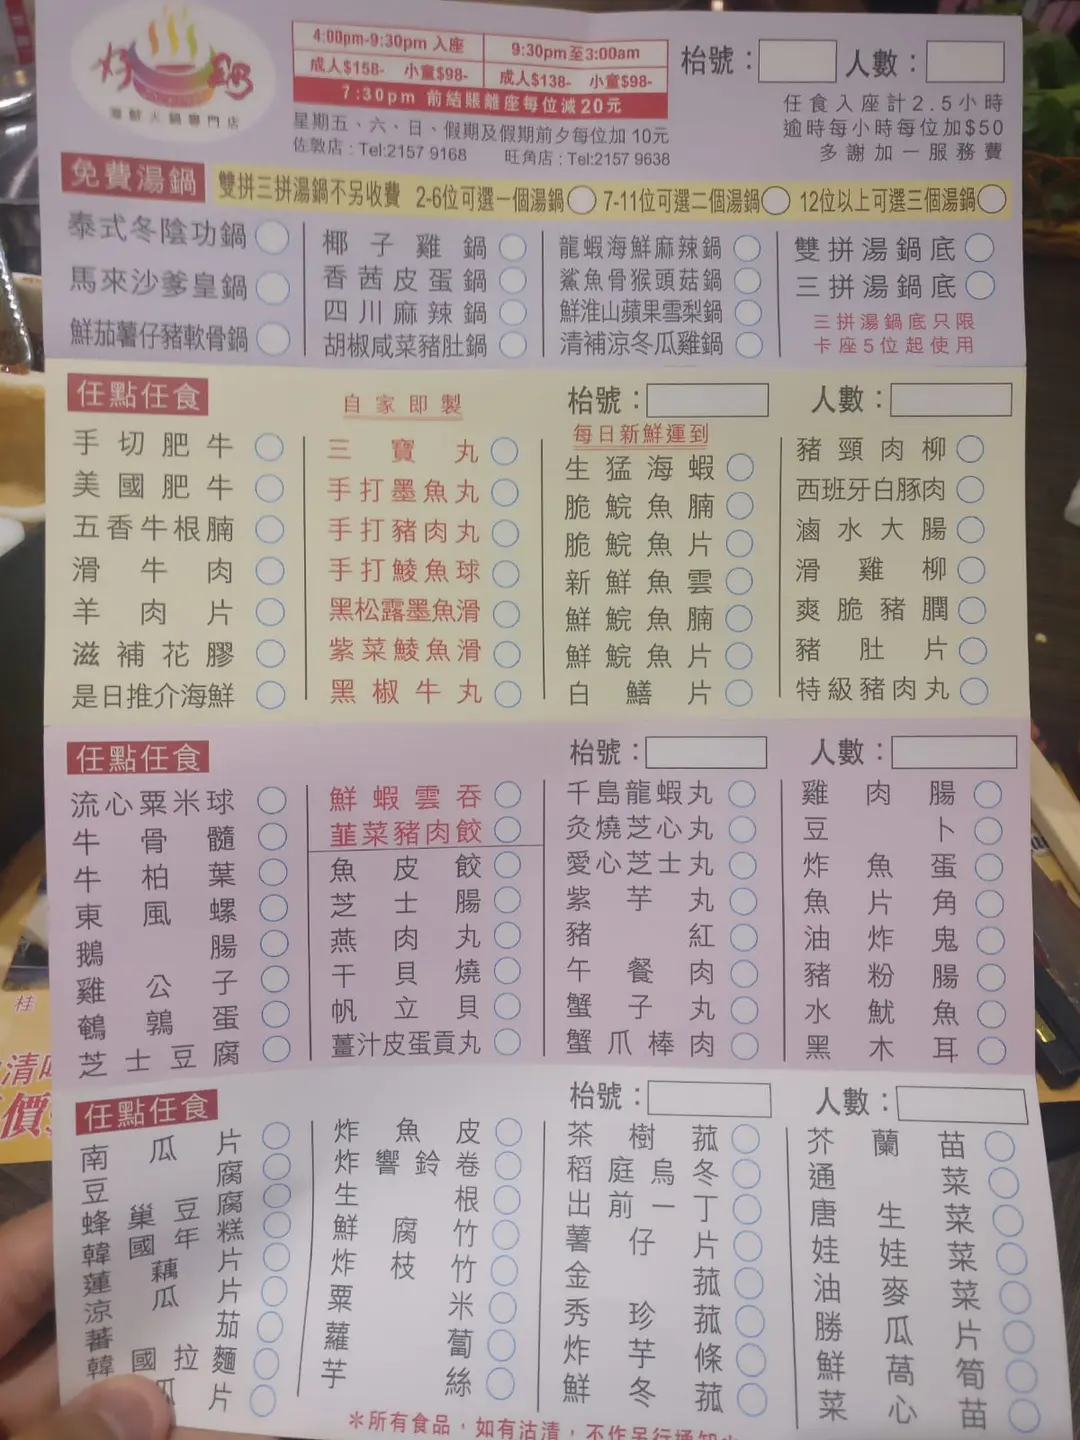 海鮮火鍋專門店
4:00pm-9:30pm 入座
9:30pm至3:00am
成人$158- 小童$98-
成人$138- 小童$98-
7:30pm 前結賬離座每位減20元
星期五、六、日、假期及假期前夕每位加 10元
佐敦店 : Tel:2157 9168 旺角店 : Tel:2157 9638
枱號：
人數：
任食入座計2.5小時
逾時每小時每位加$50
多謝加一服務費
免費湯鍋
雙拼三拼湯鍋不另收費 2-6位可選一個湯鍋 7-11位可選二個湯鍋 12位以上可選三個湯鍋
泰式冬陰功鍋
馬來沙爹皇鍋
鮮茄薯仔豬軟骨鍋
椰子雞鍋
香茜皮蛋鍋
四川麻辣鍋
胡椒咸菜豬肚鍋
龍蝦海鮮麻辣鍋
鯊魚骨猴頭菇鍋
鮮淮山蘋果雪梨鍋
清補涼冬瓜雞鍋
雙拼湯鍋底
三拼湯鍋底
三拼湯鍋底只限
卡座5位起使用
任點任食
枱號：
人數：
手切肥牛
美國肥牛
五香牛根腩
滑牛肉
羊肉片
滋補花膠
是日推介海鮮
自家即製
三寶丸
手打墨魚丸
手打豬肉丸
手打鯪魚球
黑松露墨魚滑
紫菜鯪魚滑
黑椒牛丸
每日新鮮運到
生猛海蝦
脆鯇魚腩
脆鯇魚片
新鮮魚雲
鮮鯇魚腩
鮮鯇魚片
白鱔片
豬頸肉柳
西班牙白豚肉
滷水大腸
滑雞柳
爽脆豬膶
豬肚片
特級豬肉丸
任點任食
枱號：
人數：
流心粟米球
牛骨髓
牛柏葉
東風螺
鵝腸
雞公子
鵪鶉蛋
芝士豆腐
鮮蝦雲吞
韮菜豬肉餃
魚皮餃
芝士腸
燕肉丸
干貝燒
帆立貝
薑汁皮蛋貢丸
千島龍蝦丸
灸燒芝心丸
愛心芝士丸
紫芋丸
豬紅
午餐肉
蟹子丸
蟹爪棒肉
雞肉腸
豆卜
炸魚蛋
魚片角
油炸鬼
豬粉腸
水魷魚
黑木耳
任點任食
枱號：
人數：
南瓜片
豆腐
蜂巢豆腐
韓國年糕
蓮藕片
涼瓜片
蕃茄
韓國拉麵
瓜片
炸魚皮
炸響鈴卷
生根
鮮腐竹
炸枝竹
粟米
蘿蔔
芋絲
茶樹菰
稻庭烏冬
出前一丁
薯仔片
金菰
秀珍菰
炸芋條
鮮冬菰
芥蘭苗
通菜
唐生菜
娃娃菜
油麥菜
勝瓜片
鮮萵筍
菜心苗
＊所有食品，如有沽清，不作另行通知